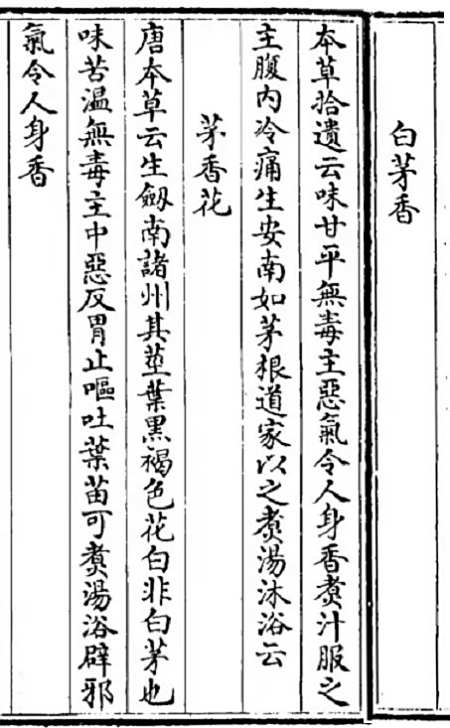 白茅香
本草拾遺云味甘平無毒主惡氣令人身香煑汁服之
主腹内冷痛生安南如茅根道家以之煑湯沐浴云
茅香花
唐本草云生劒南諸州其莖葉黑褐色花白非白茅也
味苦温無毒主中惡反胃止嘔吐葉苗可煑湯浴辟邪
氣令人身香